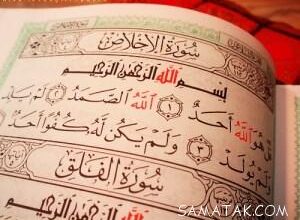 سُورَةُ الإِخْلَاصِ
بِسْمِ اللَّهِ الرَّحْمَنِ الرَّحِيمِ
قُلْ هُوَ اللَّهُ أَحَدٌ ١ اللَّهُ الصَّمَدُ ٢ لَمْ
وَلَمْ يُولَدْ ٣ وَلَمْ يَكُن لَّهُ كُفُوًا أَحَدٌ
سُورَةُ الْفَلَقِ
بِسْمِ اللَّهِ الرَّحْمَنِ الرَّحِيمِ
SAMATAK.COM